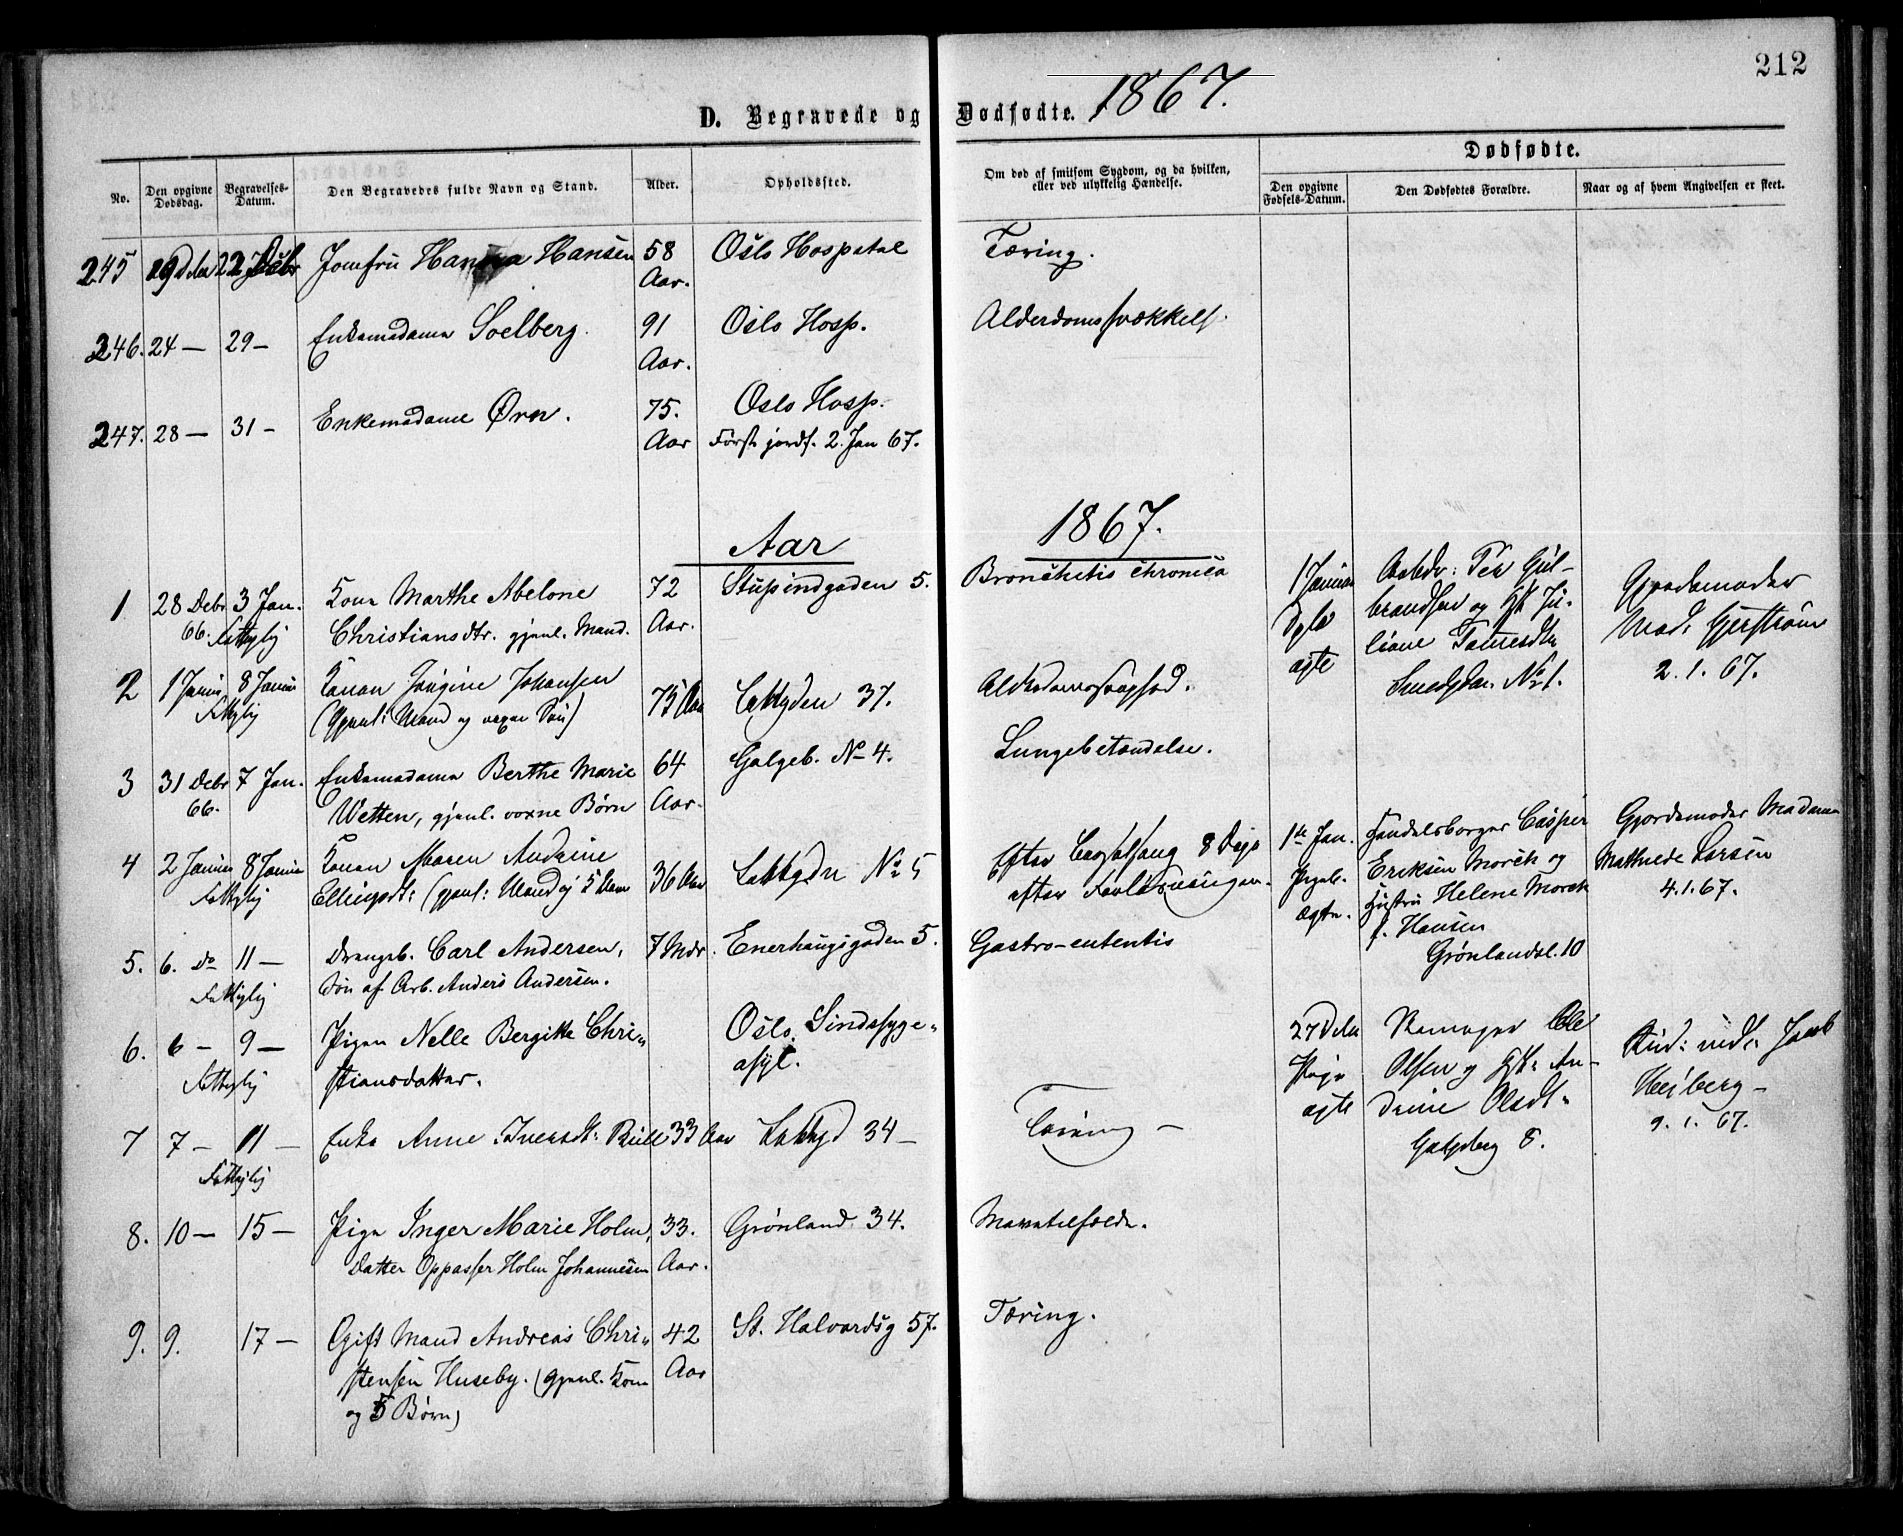 212
D. Begravede og Dødfødte. 1867.
No.
Den opgivne Dødsdag.
Begravelses-Datum.
Den Begravedes fulde Navn og Stand.
Alder.
Opholdssted.
Om død af smitsom Sygdom, og da hvilken,
eller ved ulykkelig Hændelse.
Dødfødte.
Den opgivne Fødsels-Datum.
Den Dødfødtes Forældre.
Naar og af hvem Angivelsen er skeet.
245 22 Jomfru Hansen 58 Oslo Hospetal Tæring.
Aar.
246. 24 — 29 — Enkemadame Soelberg. 91 Oslo Hosp. Alderdomssvækkels.
Aar.
247. 28 — 31 — Enkemadame Ørn. 75. Oslo Hosp.
Aar Først jordf. 2. Jan 67.
Aar 1867.
1 28 Debr 3 Jan. Kone Marthe Abelone 72 Stupindgaden 5. Bronchitis chronica
66. Fattiglig Christiansdtr. gjenl. Mand. Aar.
2 1 Januar 8 Januar Konen Johansen 75 Aar Lakkgden 37.
Fattiglig (Gjenl: Mand og voxen Søn)
3 31 Debr 7 Jan. Enkemadame Berthe Marie 64 Galgeb. No 4. Lungebetændelse.
66. Wetten, gjenl. voxne Børn Aar.
4 2 Januar 8 Januar Konen Maren Andrine 36 Aar Lakkgdn No 5 Efter Barselseng 8 Dage
Fattiglig (gjenl: Mand og 5 Børn efter Forløsningen.
5. 6. Do 11 — Drengeb. Carl Andersen, 7 Mdr. Enerhaugsgaden 5. Gastro-enteritis
Fattiglig Søn af Arb. Anders Andersen.
6. 6 — 9 — Pigen Nelle Bergitte Chri- Oslo Sindssyge-
Fattiglig stiansdatter. asyl.
7 7 — 11 — Enke Anne Iversdt: 33 Aar Lakkgd 34 — Tæring —
Fattiglig
8. 10 — 15 — Pige Inger Marie Holm, 33. Grønland 34. Mavetilfælde.
Datter Oppasser Holm Johannesen Aar.
9. 9. 17 — Gift Mand Andreas Chri- 42 St. Halvardsg 57. Tæring.
stensen Huseby. (gjenl. Kone Aar
og 5 Børn)
1 Januar Arbdr: Per Gul- Gjordemoder
brandsen og Hst. Ju- Mad:
ægte liane 2. 1. 67.
Smedgdn. No 1.
1ste Jan. Handelsborger Casper Gjordemoder Madame
Pigeb. Eriksen Morch og Mathilde Larsen
Ægte. Hustru Helene Morch 4. 1. 67.
f. Hansen
Grønlandsl. 10
27 Ole
Pige Olsen og Hst: An- Heiberg —
ægte drine Olsdt. 9. 1. 67.
Galgeberg 8.